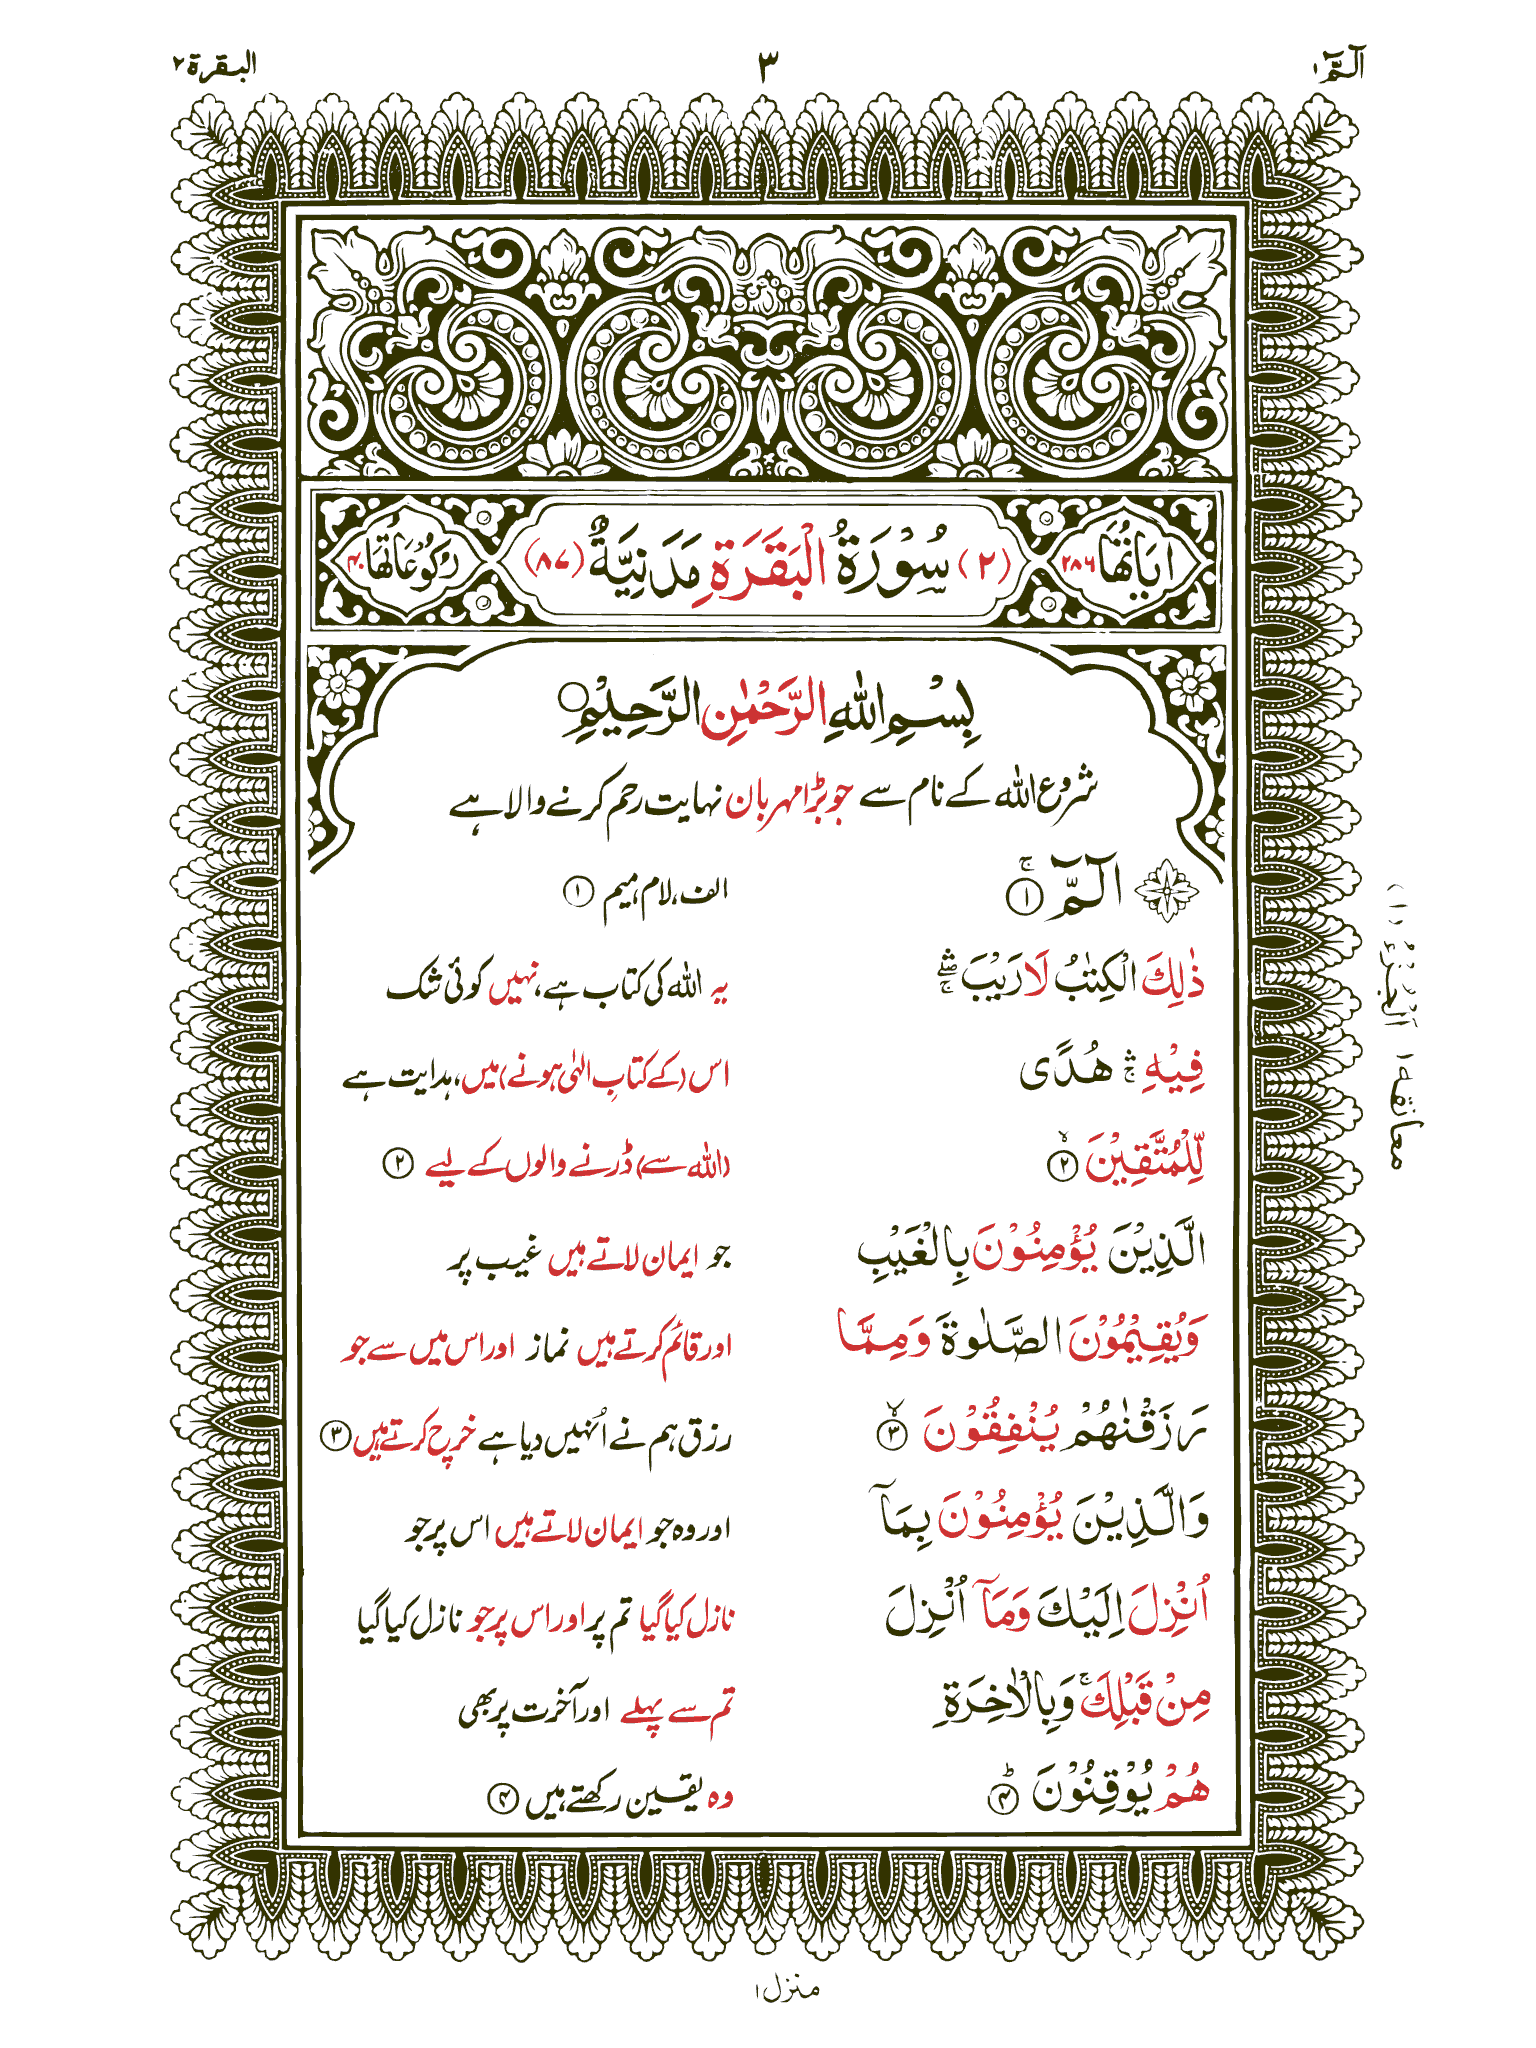 الٓمّٓ ۱
۳
البقرة ۲
اٰیَاتُهَا ۲۸۶
(۲) سُوْرَةُ الْبَقَرَةِ مَدَنِیَّةٌ (۸۷)
رُكُوْعَاتُهَا ۴۰
بِسْمِ اللّٰهِ الرَّحْمٰنِ الرَّحِیْمِ ○
شروع اللہ کے نام سے جو بڑا مہربان نہایت رحم کرنے والا ہے
الٓمّٓ ۚ ① الف، لام، میم ①
ذٰلِكَ الْكِتٰبُ لَا رَیْبَ ۛۖۚ یہ اللہ کی کتاب ہے، نہیں کوئی شک
فِیْهِ ۛۚ هُدًی اس (کے کتابِ الٰہی ہونے) میں، ہدایت ہے
لِّلْمُتَّقِیْنَ ۙ ② (اللہ سے) ڈرنے والوں کے لیے ②
الَّذِیْنَ یُؤْمِنُوْنَ بِالْغَیْبِ جو ایمان لاتے ہیں غیب پر
وَیُقِیْمُوْنَ الصَّلٰوةَ وَمِمَّا اور قائم کرتے ہیں نماز اور اس میں سے جو
رَزَقْنٰهُمْ یُنْفِقُوْنَ ۙ ③ رزق ہم نے اُنہیں دیا ہے خرچ کرتے ہیں ③
وَالَّذِیْنَ یُؤْمِنُوْنَ بِمَاۤ اور وہ جو ایمان لاتے ہیں اس پر جو
اُنْزِلَ اِلَیْكَ وَمَاۤ اُنْزِلَ نازل کیا گیا تم پر اور اس پر جو نازل کیا گیا
مِنْ قَبْلِكَ ۚ وَبِالْاٰخِرَةِ تم سے پہلے اور آخرت پر بھی
هُمْ یُوْقِنُوْنَ ؕ ④ وہ یقین رکھتے ہیں ④
معانقه ۱ اَلْجُزْءُ (۱)
منزل ۱